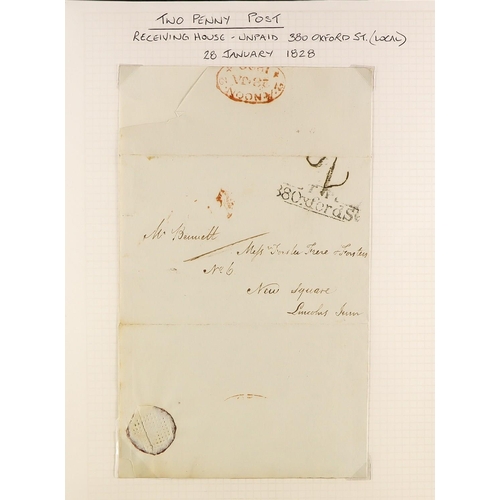 TWO PENNY POST
RECEIVING HOUSE - UNPAID 380 OXFORD ST. (LOCAL)
28 JANUARY 1828
380xfordSt
Mr Bennett
Messrs Forster Frere & Forster
No 6
New Square
Lincolns Inn